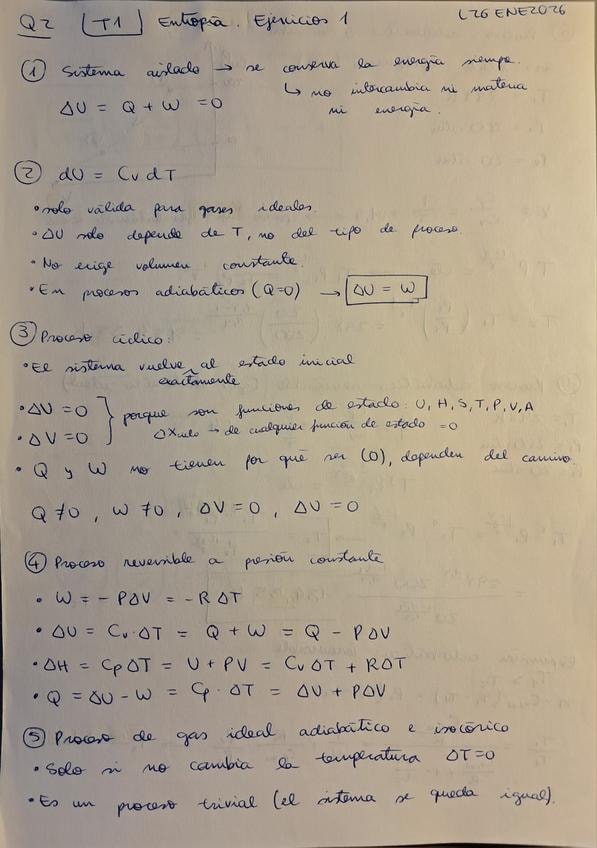 Q2 [T1] Entropía. Ejercicios 1 L26 ENE2026
① Sistema aislado → se conserva la energía siempre.
↳ no intercambia ni materia
ni energía.
ΔU = Q + W = 0
② dU = Cv dT
• solo válida para gases ideales.
• ΔU solo depende de T, no del tipo de proceso.
• No exige volumen constante.
• En procesos adiabáticos (Q=0) → ΔU = W
③ Proceso cíclico:
• El sistema vuelve al estado inicial
exactamente
• ΔU = 0
• ΔV = 0
} porque son funciones de estado: U, H, S, T, P, V, A
ΔXciclo → de cualquier función de estado = 0
• Q y W no tienen por qué ser (0), dependen del camino
Q ≠ 0, W ≠ 0, ΔV = 0, ΔU = 0
④ Proceso reversible a presión constante
• W = - PΔV = - R ΔT
• ΔU = Cv·ΔT = Q + W = Q - PΔV
• ΔH = CpΔT = U + PV = CvΔT + RΔT
• Q = ΔU - W = Cp·ΔT = ΔU + PΔV
⑤ Proceso de gas ideal adiabático e isocórico
• Solo si no cambia la temperatura ΔT=0
• Es un proceso trivial (el sistema se queda igual).